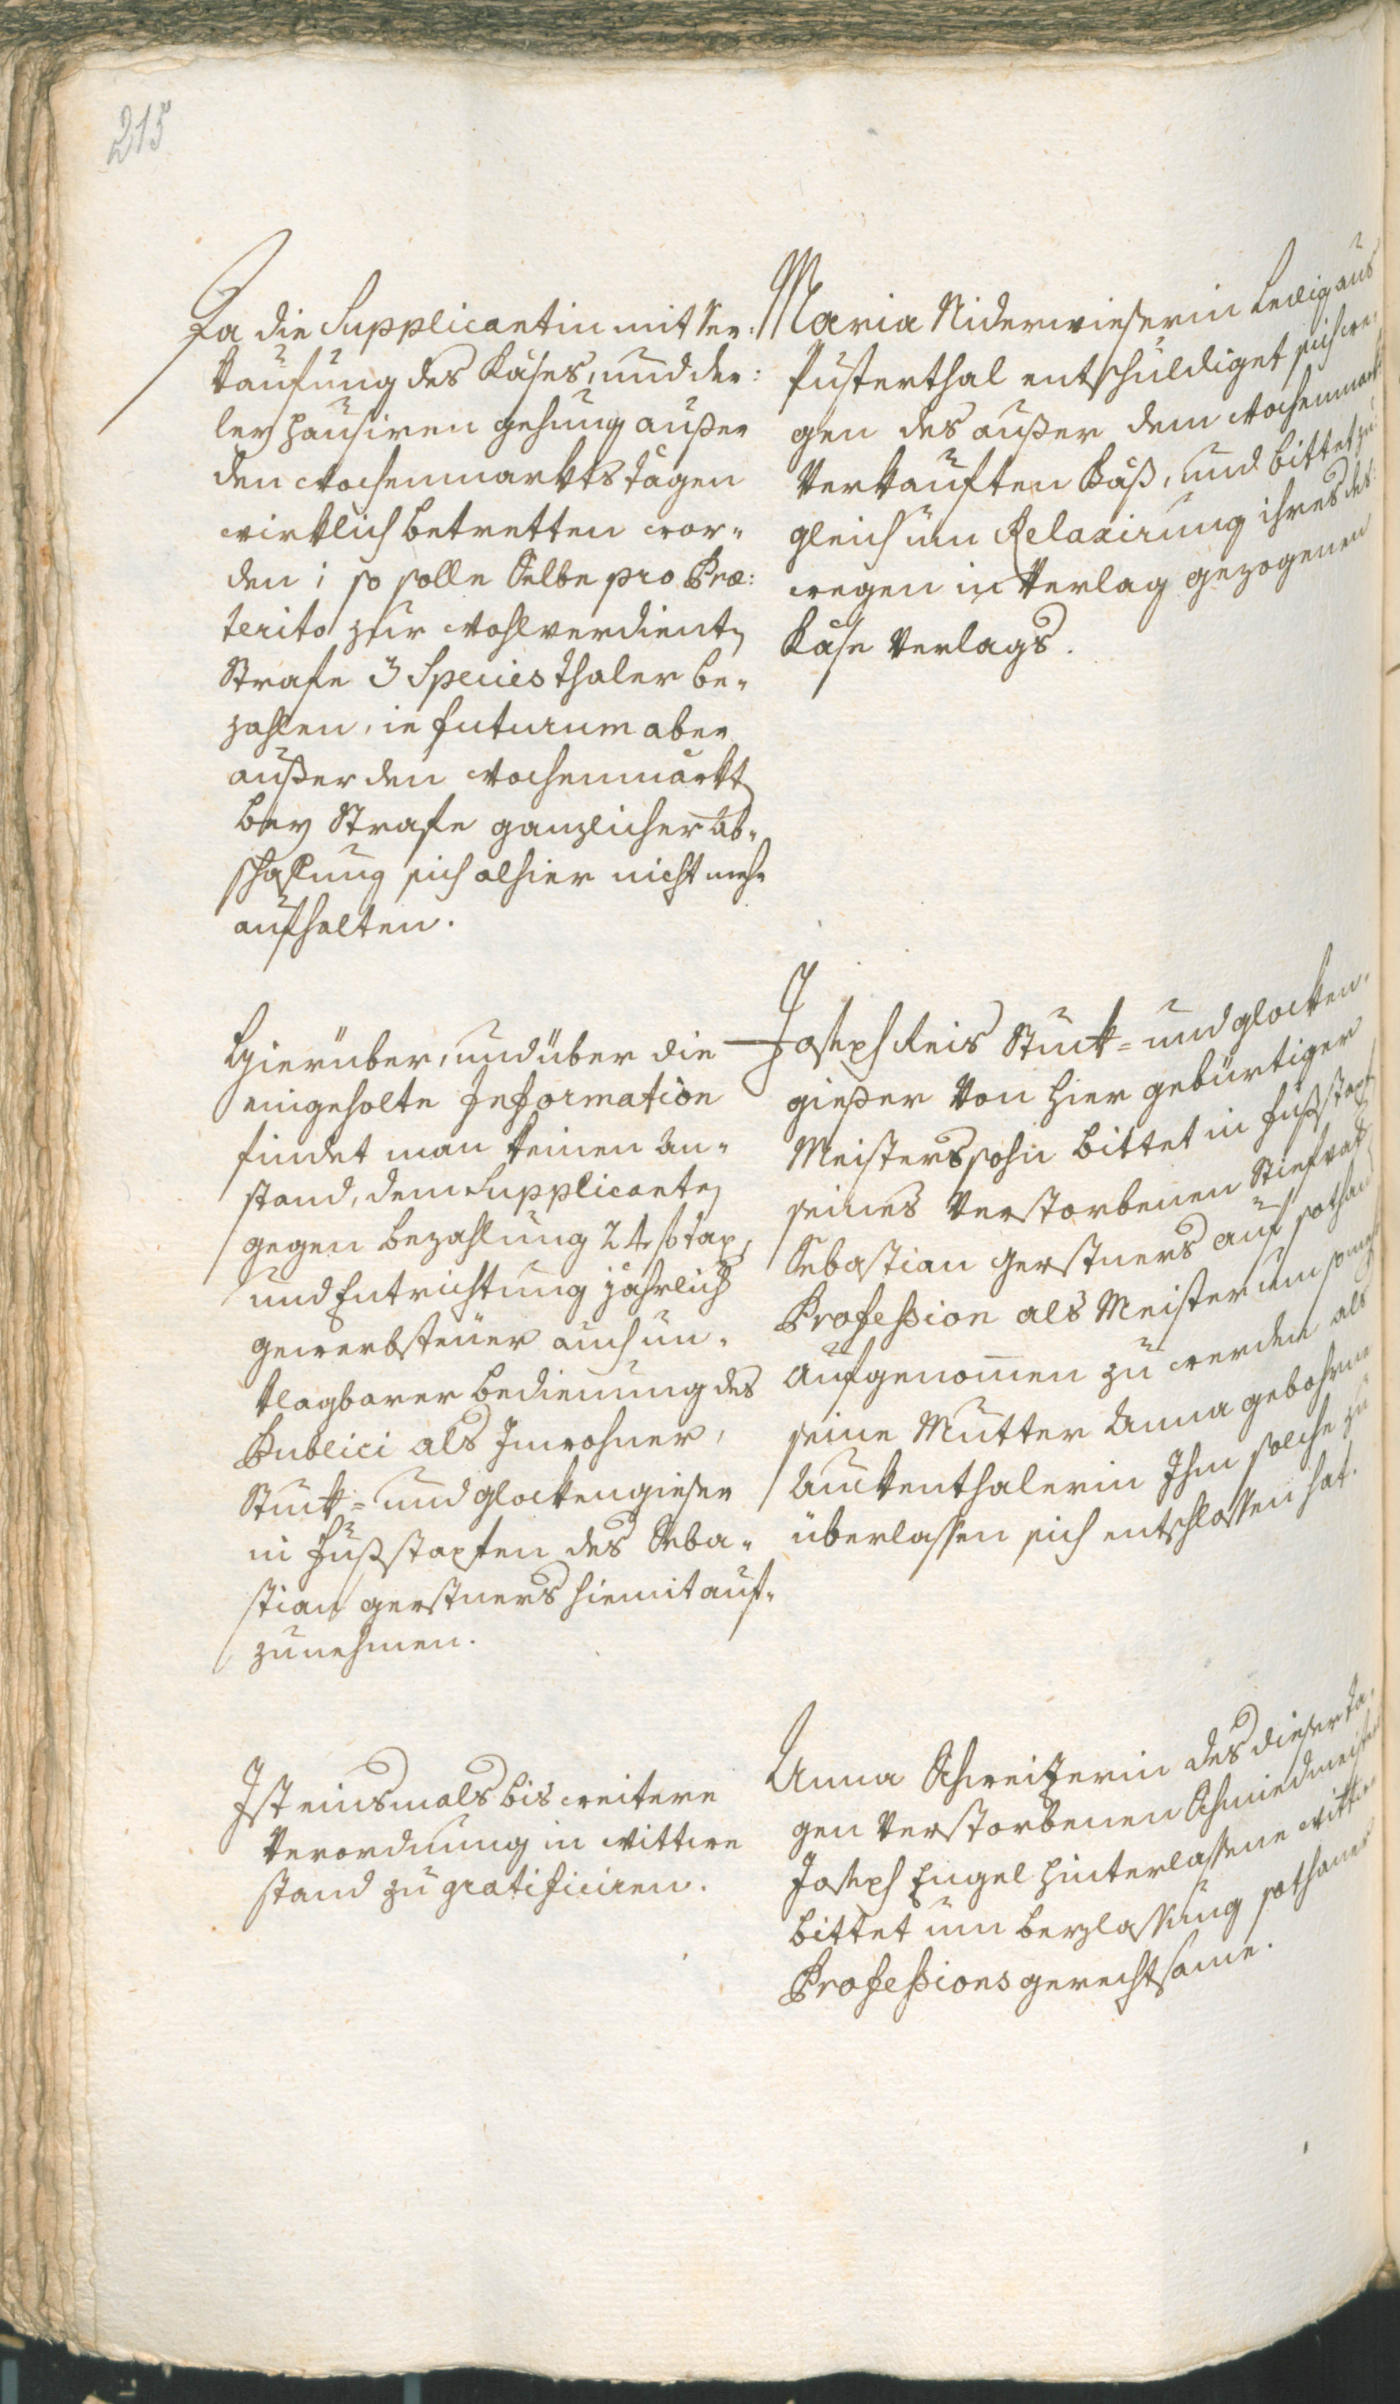 215
Da die Supplicantin mit Ver:
kaufung des Käses, und der:
ley hausiren gehung außer
den Wochenmarktstägen
wirklich betretten wor-
den; so solle Selbe pro Præ:
terito zur wohlverdienten
Strafe 3 Species thaler be-
zahlen, in futurum aber
außer den Wochenmarkt
bey Strafe gänzlicher Ab-
schaffung sich alhier nicht mehr
aufhalten.
Maria Niderwieserin Ledig aus
Pusterthal entschuldiget sich we-
gen des außer dem Wochenmarkt
Verkauften Käß, und bittet zu-
gleich um Relaxirung ihres des-
wegen in Verlag gezogenen
Käse Verlags.
Hierüber, und über die
eingeholte Information
findet man keinen An-
stand, dem Supplicanten
gegen Bezahlung 24 f tax,
und Entrichtung jährlich
gewerbsteuer auch un-
klagbarer bedienung des
Publici als Inwohner,
Stuck- und glockengieser
in Fußstapfen des Seba-
stian gerstners hiemit auf-
zunehmen.
Joseph Reis Stuck- und glocken-
gießer von hier gebürtiger
Meisterssohn bittet in Fußstapf
seines Verstorbenen Stiefvat
Sebastian gerstners auf sothan
Profession als Meister um so mehr
aufgenommen zu werden als
seine Mutter Anna gebohrne
Auckenthalerin Ihm solche zu
überlassen sich entschlossen hat.
Ist einsmals bis weitere
Verordnung in Wittwe
stand zu gratificiren.
Anna Schweitzerin des dieser ta-
gen Verstorbenen Schmiedmeister
Joseph Engel hinterlassene Wittwe
bittet um beylassung sothaner
Professionsgerechtsame.